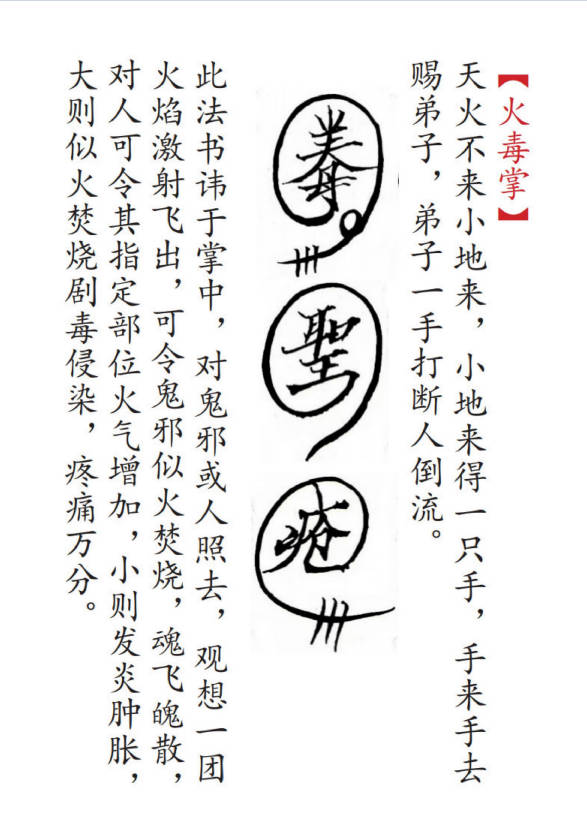 【火毒掌】
天火不来小地来，小地来得一只手，手来手去
赐弟子，弟子一手打断人倒流。
聖
此法书讳于掌中，对鬼邪或人照去，观想一团
火焰激射飞出，可令鬼邪似火焚烧，魂飞魄散，
对人可令其指定部位火气增加，小则发炎肿胀，
大则似火焚烧剧毒侵染，疼痛万分。